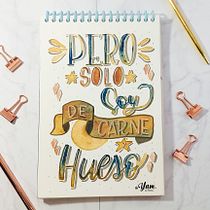 PERO
SOLO
Soy
DE CARNE
Hueso
Yam